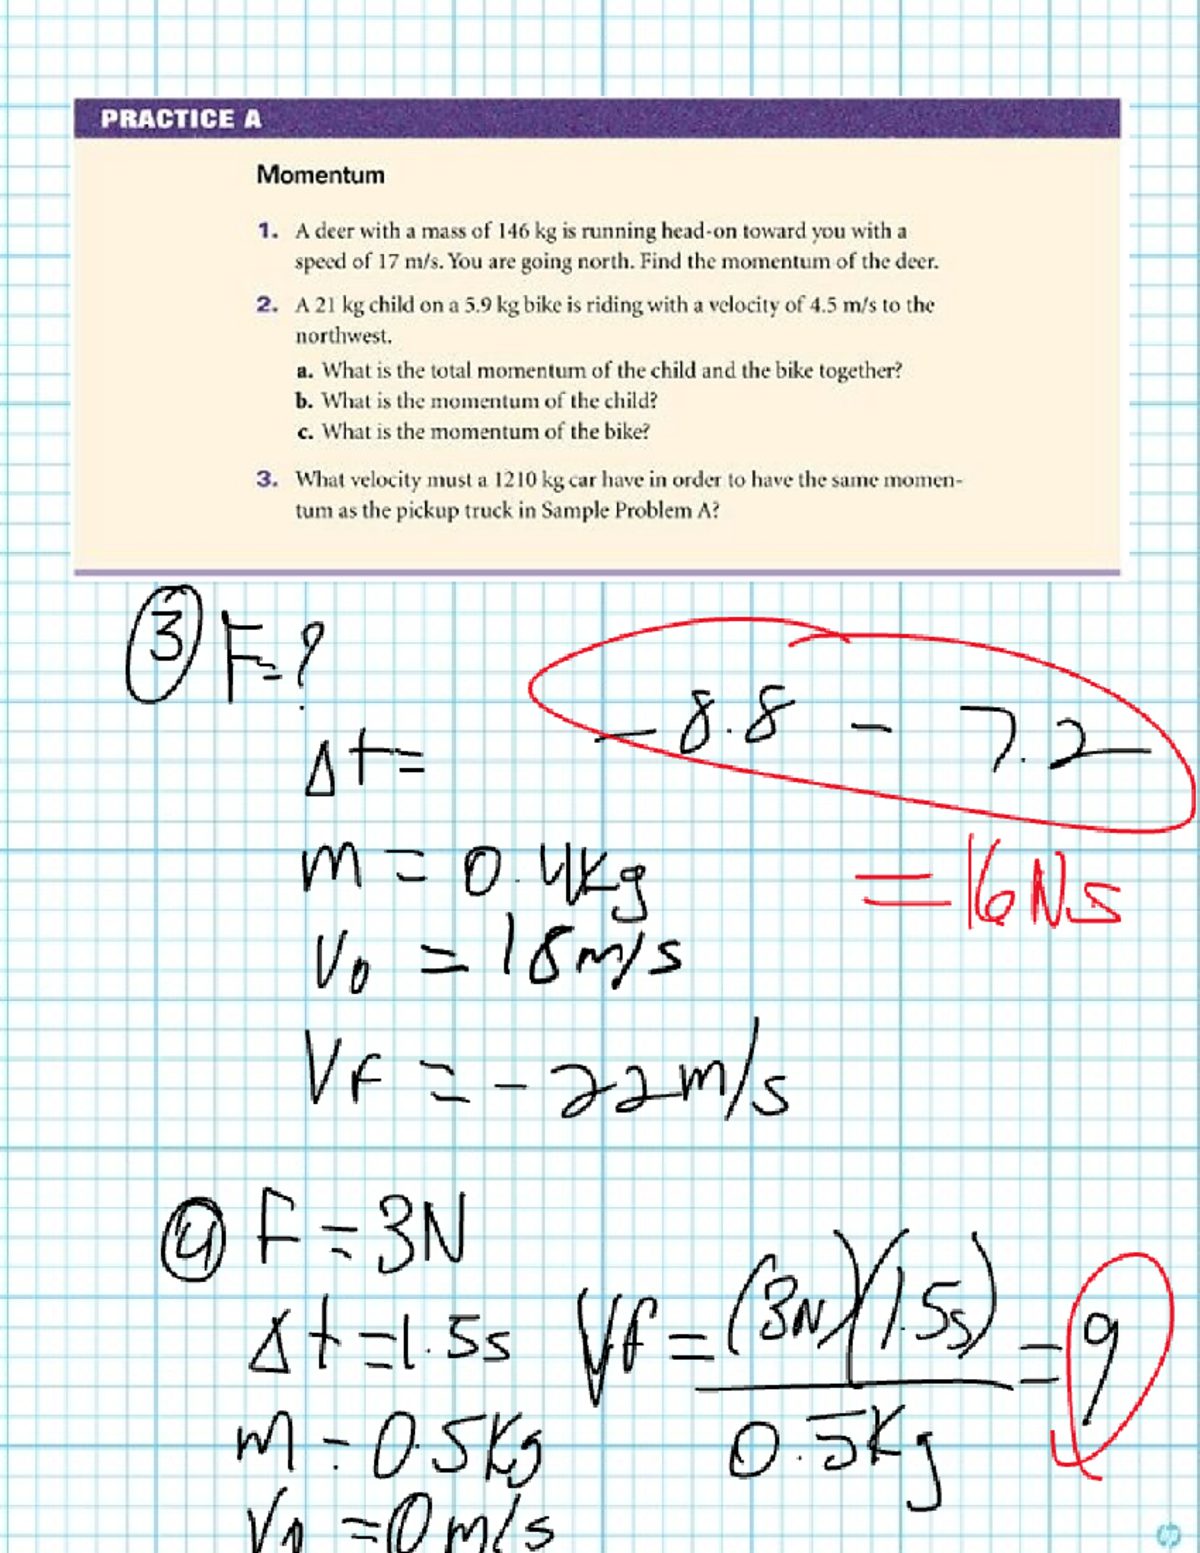 PRACTICE A
Momentum
1. A deer with a mass of 146 kg is running head-on toward you with a
speed of 17 m/s. You are going north. Find the momentum of the deer.
2. A 21 kg child on a 5.9 kg bike is riding with a velocity of 4.5 m/s to the
northwest.
a. What is the total momentum of the child and the bike together?
b. What is the momentum of the child?
c. What is the momentum of the bike?
3. What velocity must a 1210 kg car have in order to have the same momen-
tum as the pickup truck in Sample Problem A?
3 F=?
-8.8 - 7.2
Δt=
m = 0.4kg
= 16Ns
V0 = 18m/s
VF = -22m/s
4 F=3N
Δt=1.5s
Vf = (3N)(1.5s) = 9
0.5Kg
m=0.5Kg
V0 =0m/s
hp